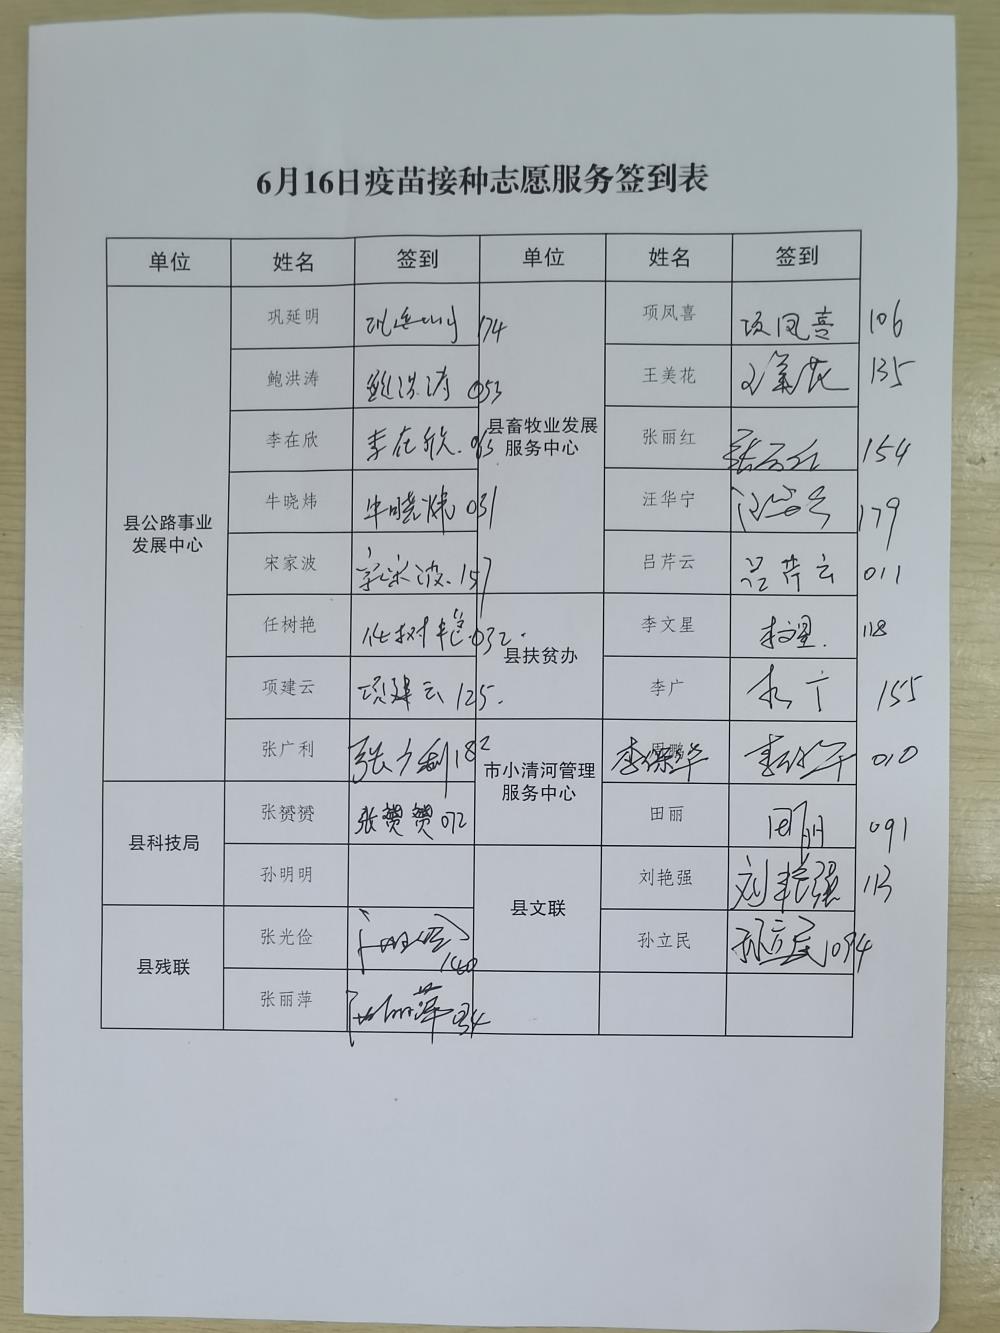 6月16日疫苗接种志愿服务签到表
单位 姓名 签到 单位 姓名 签到
县公路事业
发展中心
巩延明 巩延明 174
鲍洪涛 鲍洪涛 053
李在欣 李在欣.
牛晓炜 牛晓炜 031
宋家波 宋家波.157
任树艳 任树艳.032.
项建云 项建云 125.
张广利 张广利 182
县科技局
张赟赟 张赟赟 072
孙明明
县残联
张光俭 140
张丽萍 张丽萍 034
县畜牧业发展
服务中心
项凤喜 项凤喜 106
王美花 王美花 135
张丽红 张丽红 154
汪华宁 汪华宁 179
吕芹云 吕芹云 011
县扶贫办
李文星 李文星. 118
李广 李广 155
市小清河管理
服务中心
周鹏 李保华 李保华 010
田丽 田丽 091
县文联
刘艳强 刘艳强 113
孙立民 孙立民 1094